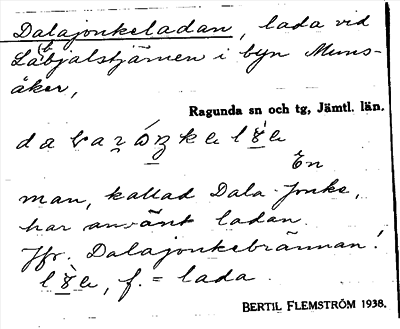 Dalajonkeladan, lada vid
Labbjalstjärnen i byn Muns-
åker,
Ragunda sn och tg, Jämtl. län.
En
man, kallad Dala-Jonke,
har använt ladan.
Jfr. Dalajonkebrännan!
f. = lada.
BERTIL FLEMSTRÖM 1938.